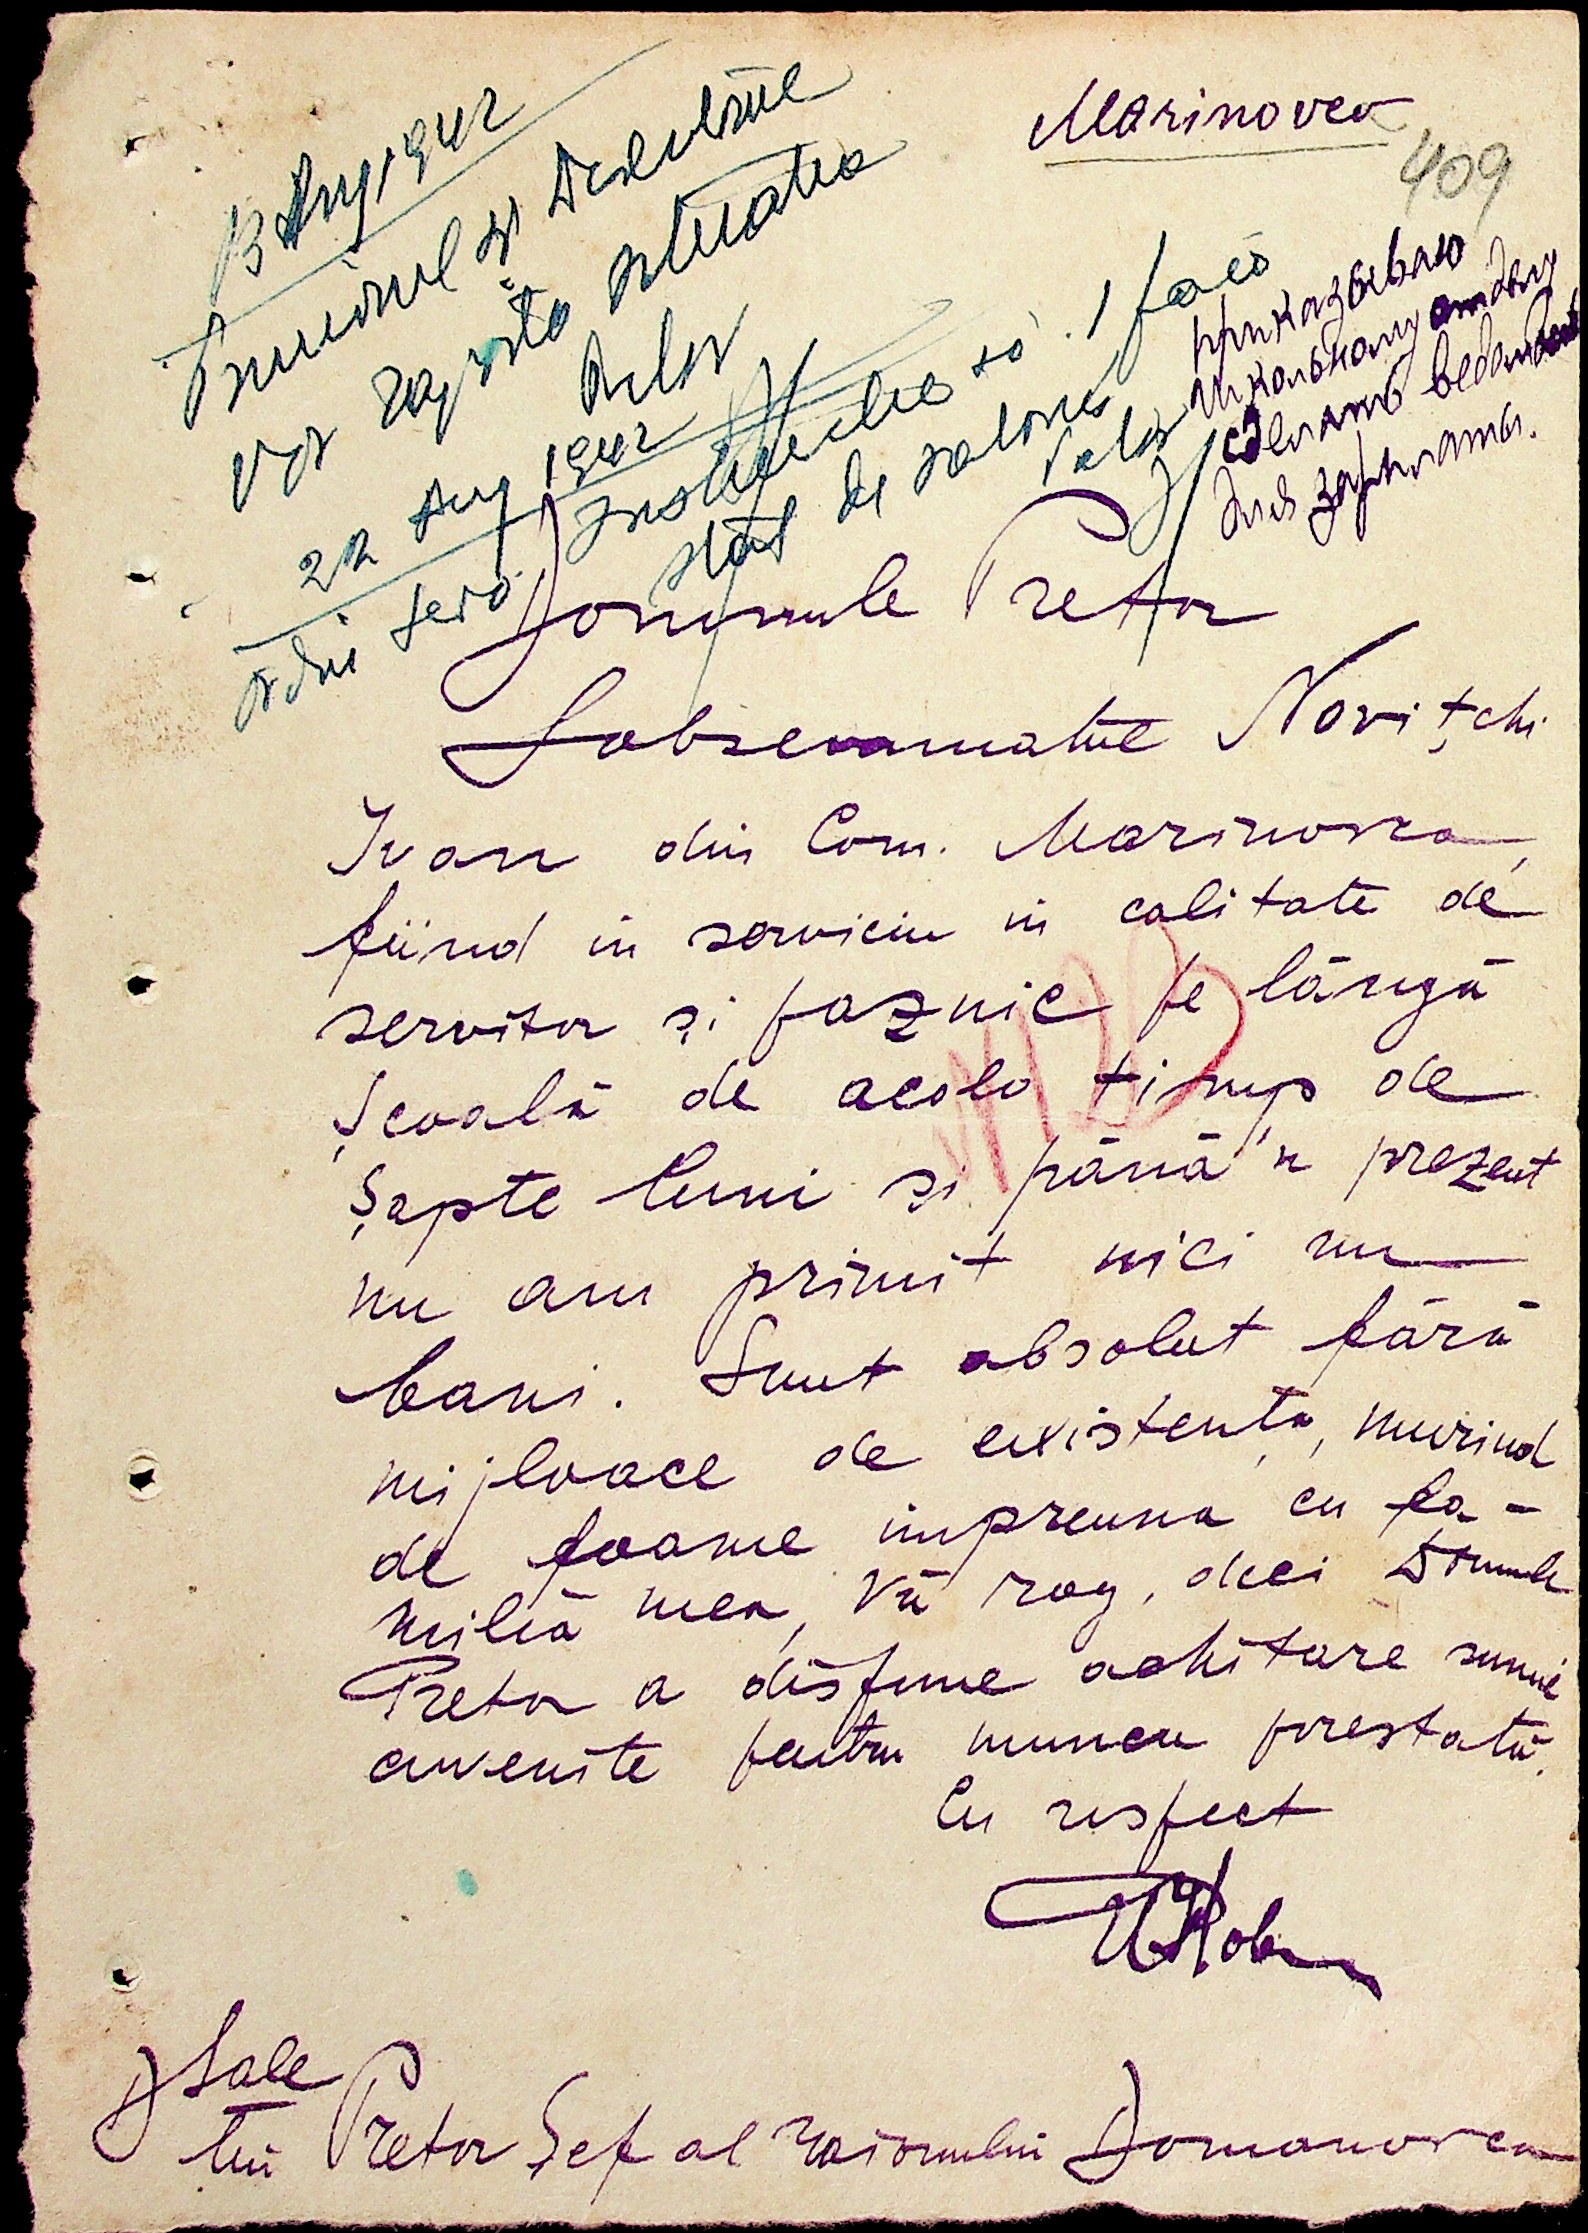 Marinovca
409
13 Aug. 1942
Primarul și
vor raporta situatia
22 Aug 1942
stat de salarii
приказываю
школьному отделу
сделать ведомость
для зарплаты.
Domnule Pretor
Subsemnatul Novițchi
Ivan din Com. Marinovca,
fiind in serviciu in calitate de
servitor și paznic pe lângă
Școală de acolo timp de
șapte luni și până'n prezent
nu am primit nici un
bani. Sunt absolut fără
mijloace de existența, murind
de foame impreuna cu fa-
milia mea, Vă rog, deci Domnule
Pretor a dispune achitare sumei
cuvenite pentru munca prestată.
Cu respect
D Sale
lui Pretor Șef al raionului Domanovca